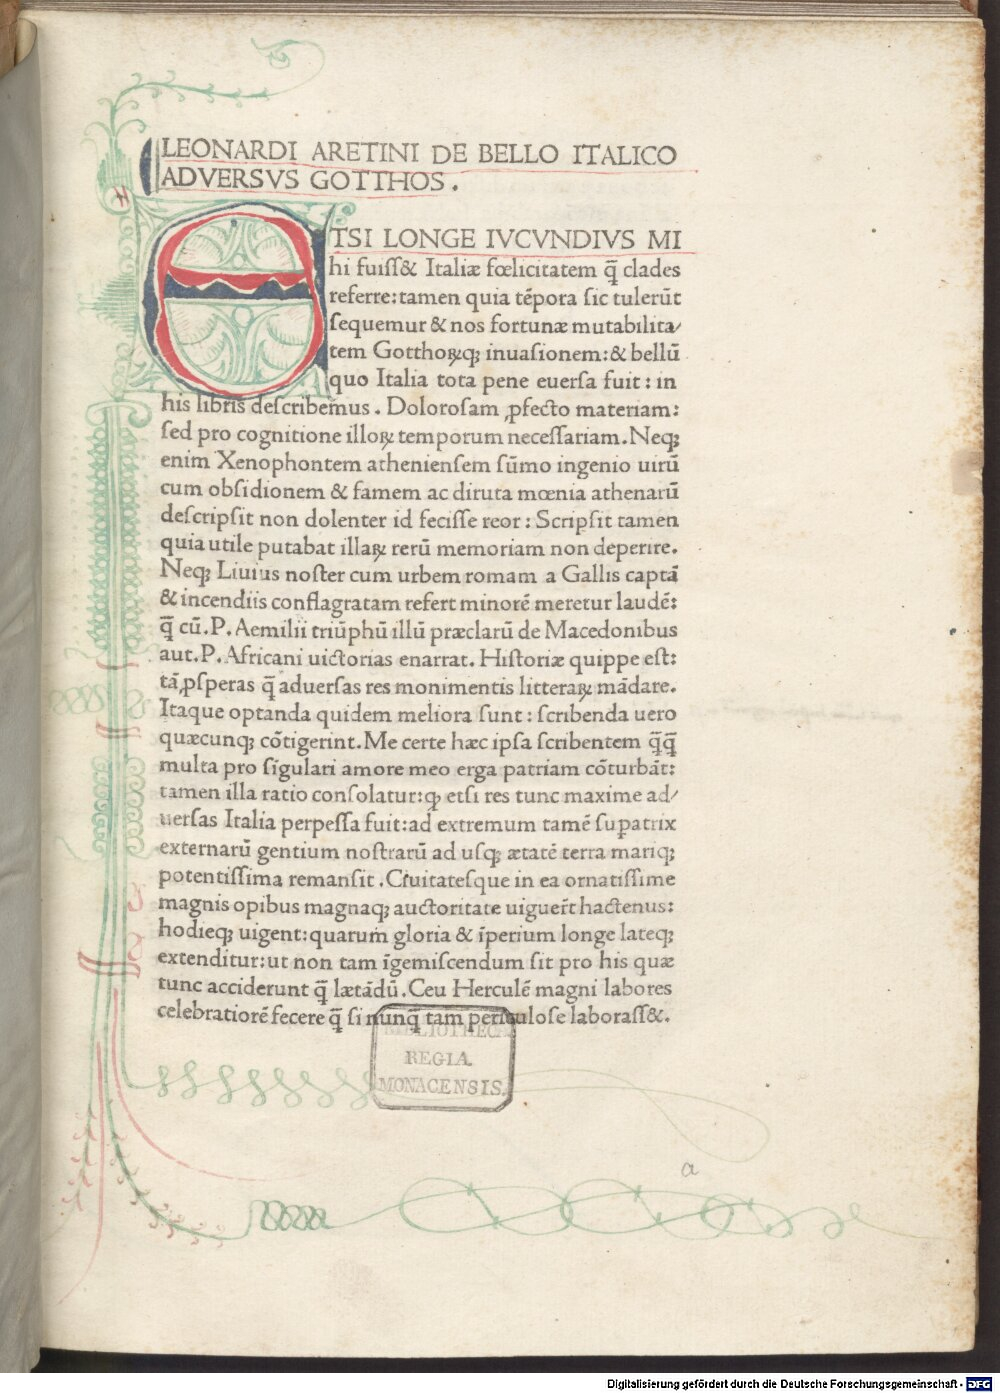 LEONARDI ARETINI DE BELLO ITALICO
ADVERSVS GOTTHOS.
ETSI LONGE IVCVNDIVS MI
hi fuiſſ& Italiæ fœlicitatem q̄ clades
referre: tamen quia tēpora ſic tulerūt
ſequemur & nos fortunæ mutabilita/
tem Gotthoꝝqꝫ inuaſionem: & bellū
quo Italia tota pene euerſa fuit: in
his libris deſcribemus. Doloroſam ꝓfecto materiam:
ſed pro cognitione illoꝝ temporum neceſſariam. Neqꝫ
enim Xenophontem athenienſem ſūmo ingenio uirū
cum obſidionem & famem ac diruta mœnia athenarū
deſcripſit non dolenter id feciſſe reor: Scripſit tamen
quia utile putabat illaꝝ rerū memoriam non deperire.
Neqꝫ Liuius noſter cum urbem romam a Gallis captā
& incendiis conflagratam refert minorē meretur laudē:
q̄ cū. P. Aemilii triūphū illū præclarū de Macedonibus
aut. P. Africani uictorias enarrat. Hiſtoriæ quippe eſt:
tā ꝓſperas q̄ aduerſas res monimentis litteraꝝ mādare.
Itaque optanda quidem meliora ſunt: ſcribenda uero
quæcunqꝫ cōtigerint. Me certe hæc ipſa ſcribentem q̄q̄
multa pro ſīgulari amore meo erga patriam cōturbāt:
tamen illa ratio conſolatur: ꝙ etſi res tunc maxime ad/
uerſas Italia perpeſſa fuit: ad extremum tamē ſuꝑatrix
externarū gentium noſtrarū ad uſqꝫ ætatē terra mariqꝫ
potentiſſima remanſit. Ciuitateſque in ea ornatiſſime
magnis opibus magnaqꝫ auctoritate uiguerūt hactenus:
hodieqꝫ uigent: quarum gloria & īperium longe lateqꝫ
extenditur: ut non tam īgemiſcendum ſit pro his quæ
tunc acciderunt q̄ lætādū. Ceu Herculē magni labores
celebratiorē fecere q̄ ſi nunq̄ tam periculoſe laboraſſ&.
BIBLIOTHECA
REGIA
MONACENSIS.
a
Digitalisierung gefördert durch die Deutsche Forschungsgemeinschaft - DFG